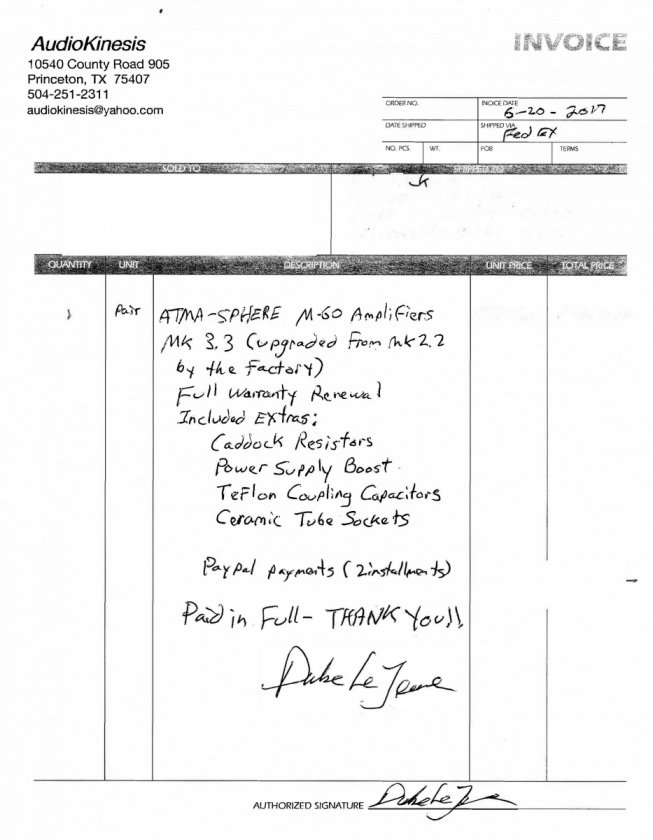 AudioKinesis
10540 County Road 905
Princeton, TX 75407
504-251-2311
audiokinesis@yahoo.com
INVOICE
ORDER NO.
INOICE DATE
6-20-2017
DATE SHIPPED
SHIPPED VIA
Fed EX
NO. PCS.
WT.
FOB
TERMS
SOLD TO
SHIPPED TO
QUANTITY UNIT DESCRIPTION UNIT PRICE TOTAL PRICE
1 Pair ATMA-SPHERE M-60 Amplifiers
MK 3.3 (upgraded from mk2.2
by the Factory)
Full Warranty Renewal
Included EXtras:
Caddock Resistors
Power Supply Boost
Teflon Coupling Capacitors
Ceramic Tube Sockets
PayPal payments (2installments)
Paid in Full- THANK YOU!!
Duke LeJeune
AUTHORIZED SIGNATURE Duke LeJeune